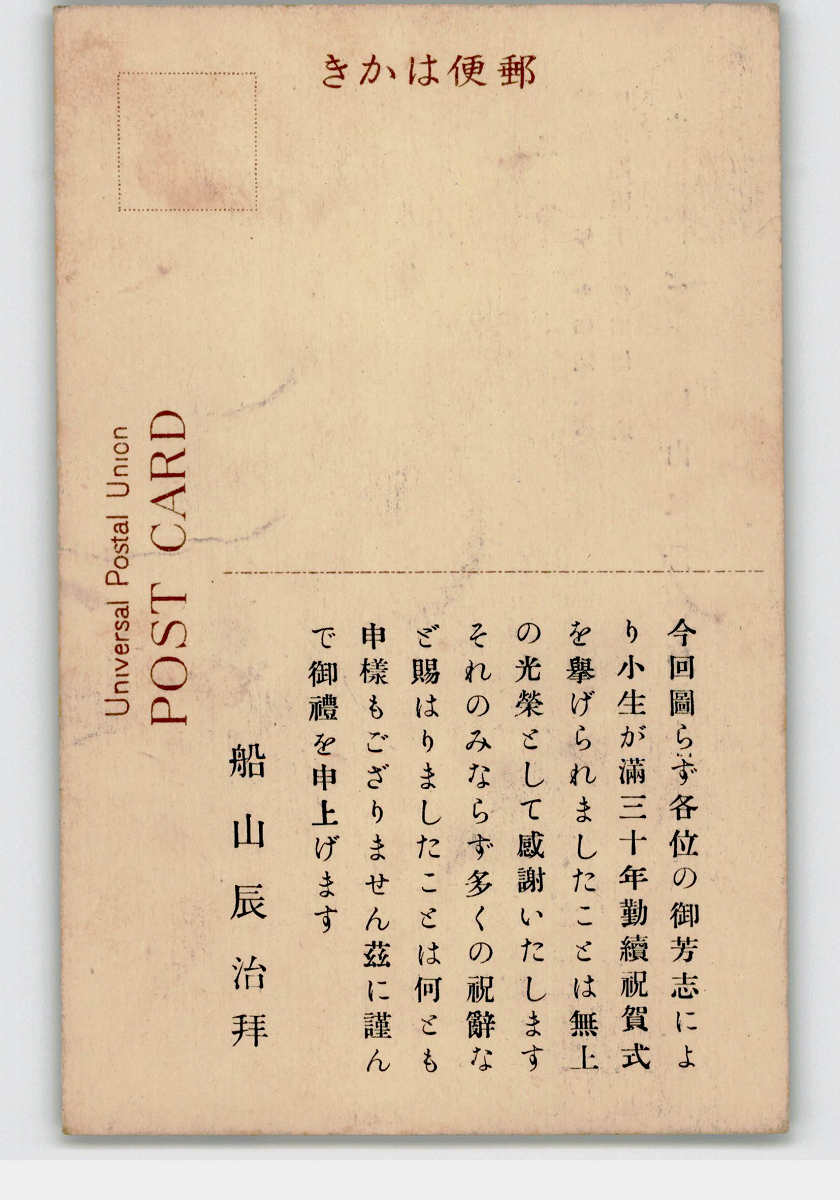 きかは便郵
Universal Postal Union
POST CARD
今回圖らず各位の御芳志によ
り小生が滿三十年勤續祝賀式
を擧げられましたことは無上
の光榮として感謝いたします
それのみならず多くの祝辭な
ど賜はりましたことは何とも
申樣もござりません茲に謹ん
で御禮を申上げます
船山辰治拜